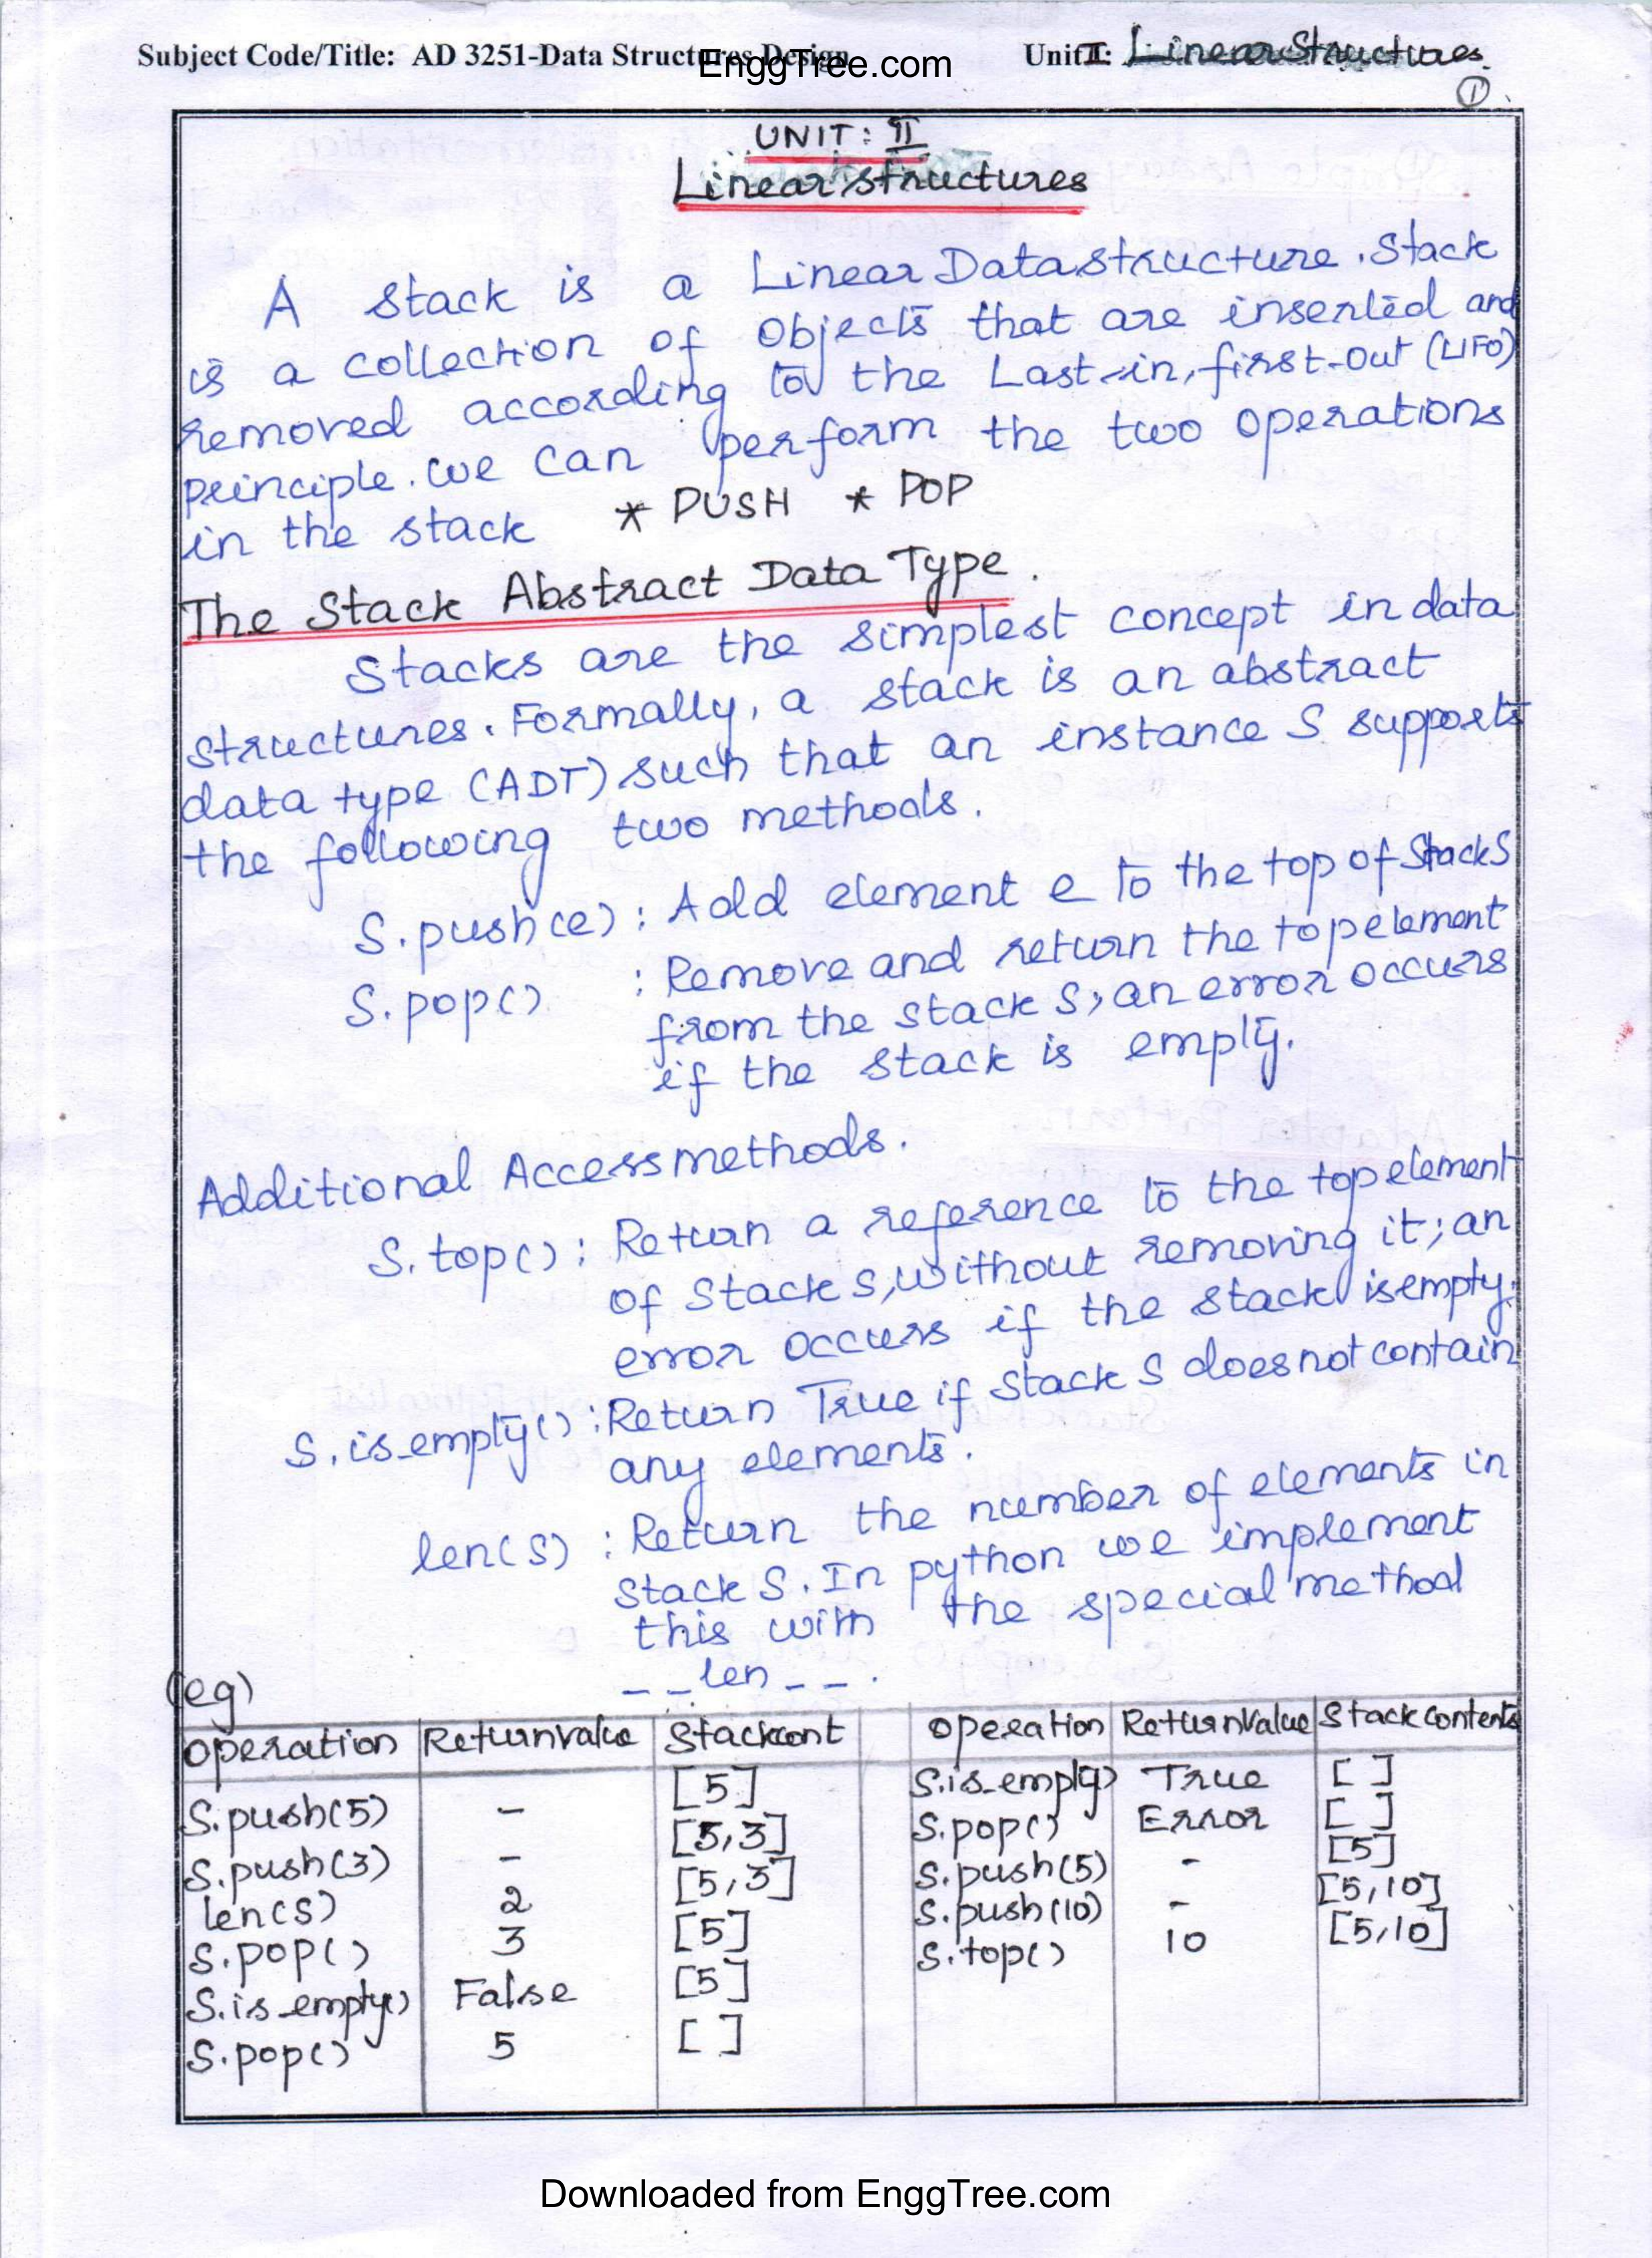 Subject Code/Title: AD 3251-Data Structures Design
EnggTree.com
Unit II: Linear Structures
1
UNIT: II
Linear Structures
A stack is a Linear Datastructure. Stack
is a collection of objects that are inserted and
removed according to the Last-in, first-out (LIFO)
principle. We can perform the two operations
in the stack * PUSH * POP
The Stack Abstract Data Type.
Stacks are the simplest concept in data
structures. Formally, a stack is an abstract
data type (ADT) such that an instance S supports
the following two methods.
S.push(e): Add element e to the top of Stack S
S.pop() : Remove and return the top element
from the stack S; an error occurs
if the stack is empty.
Additional Access methods.
S.top(): Return a reference to the top element
of Stack S, without removing it; an
error occurs if the stack is empty.
S.is_empty(): Return True if Stack S does not contain
any elements.
len(S) : Return the number of elements in
Stack S. In python we implement
this with the special method
__len__.
(eg)
Operation Return value Stack cont Operation Return Value Stack contents
S.push(5) - [5] S.is_empty() True [ ]
S.push(3) - [5,3] S.pop() Error [ ]
len(S) 2 [5,3] S.push(5) - [5]
S.pop() 3 [5] S.push(10) - [5,10]
S.is_empty() False [5] S.top() 10 [5,10]
S.pop() 5 [ ]
Downloaded from EnggTree.com